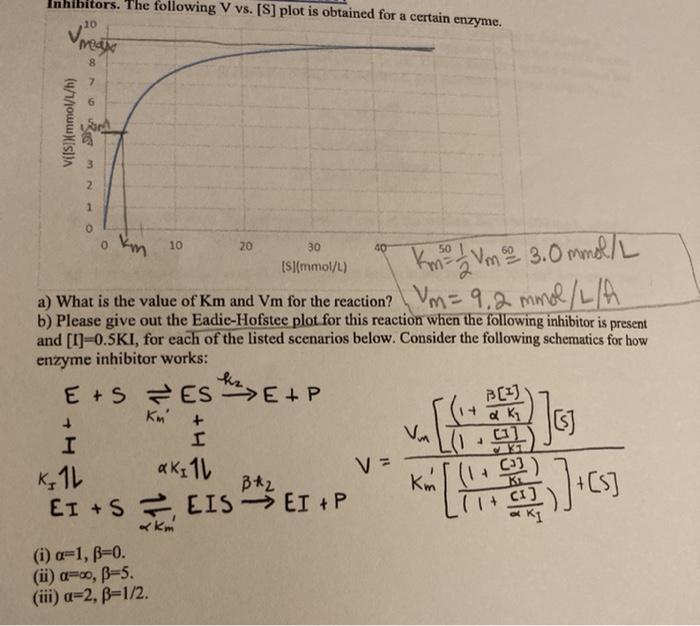 Inhibitors. The following V vs. [S] plot is obtained for a certain enzyme.
10
Vmax
8
7
6
5
3
2
1
0
V([S])(mmol/L/h)
0 Km 10 20 30 40 50 60
[S](mmol/L)
Km = 1/2 Vm ≅ 3.0 mmol/L
Vm = 9.2 mmol/L/h
a) What is the value of Km and Vm for the reaction?
b) Please give out the Eadie-Hofstee plot for this reaction when the following inhibitor is present
and [I]=0.5KI, for each of the listed scenarios below. Consider the following schematics for how
enzyme inhibitor works:
E + S ⇌ ES k2→ E + P
+ Km' +
I I
KI ⥮ αKI ⥮
EI + S ⇌ EIS βk2→ EI + P
αKm'
V = Vm [(1 + β[I]/αKI)/(1 + [I]/αKI)] [S] / Km' [(1 + [I]/KI)/(1 + [I]/αKI)] + [S]
(i) α=1, β=0.
(ii) α=∞, β=5.
(iii) α=2, β=1/2.